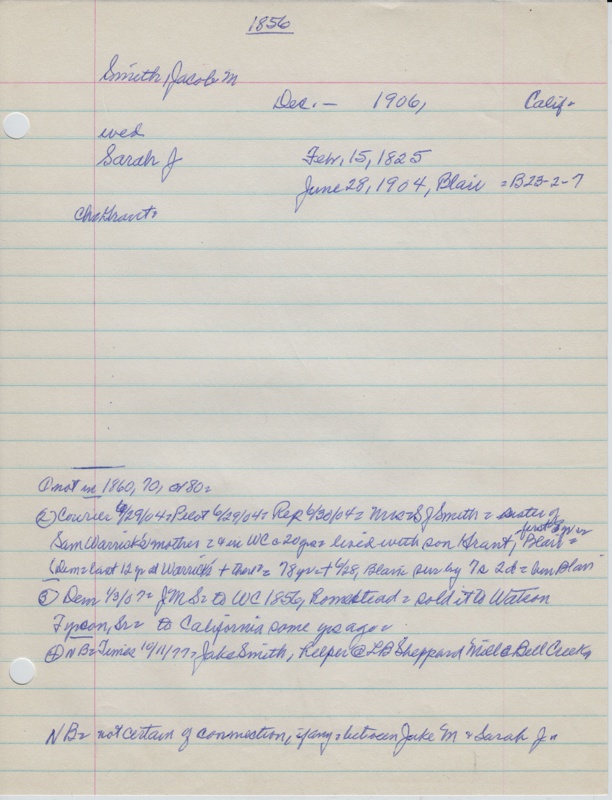 1856
Smith, Jacob M
Dec. — 1906, Calif.
wed
Sarah J Feb, 15, 1825
June 28, 1904, Blair = B23-2-7
Ch = Grant =
① not in 1860, 70, or 80 =
② Courier 6/29/04 = Pilot 6/29/04 = Rep 6/30/04 = Mrs = S J Smith = sister of
Sam Warrick's mother = in WC c 20 yrs = lived with son Grant, first 8 yr in Blair =
(Dem = last 12 yr at Warrick's + there = 78 yr = + 6/28, Blair = sur by 7s 2d = bur Blair
③ Dem 1/3/07 = J M S = to WC 1856, Homestead = sold it to Watson
Tyson, Sr = to California some yrs ago =
④ NB = Times 10/11/77 = Jake Smith, helper @ L B Sheppard Mill @ Bell Creek,
NB = not certain of connection, if any = between Jake M & Sarah J =